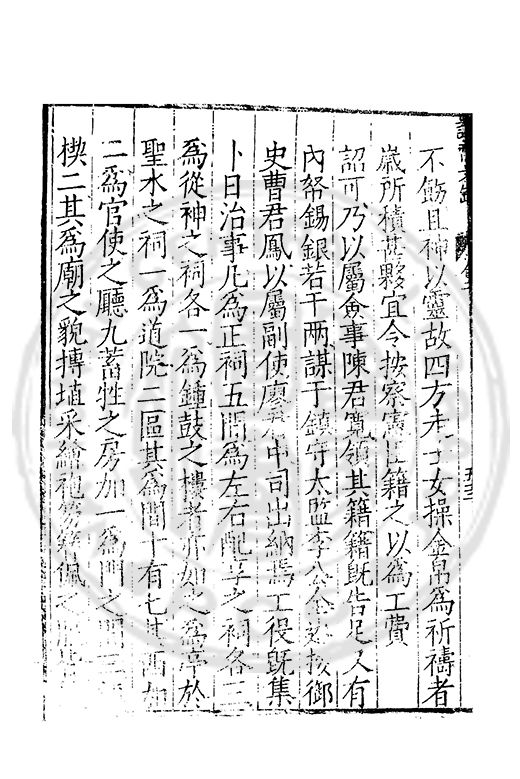 不飭且神以靈故四方士女操金帛為祈禱者
歲所積甚夥宜令按察憲臣籍之以為工費
詔可乃以屬僉事陳君寬領其籍籍既告足又有
內帑錫銀若干兩謀于鎮守太監李公全巡按御
史曹君鳳以屬副使廖中司出納焉工役既集
卜日治事凡為正祠五間為左右配享之祠各三
為從神之祠各一為鍾鼓之樓者亦如之為亭於
聖水之祠一為道院二區其為間十有七其西加
二為官使之廳九畜牲之房加一為門之間三
楔二其為廟之貌摶埴采繪袍笏簪佩之